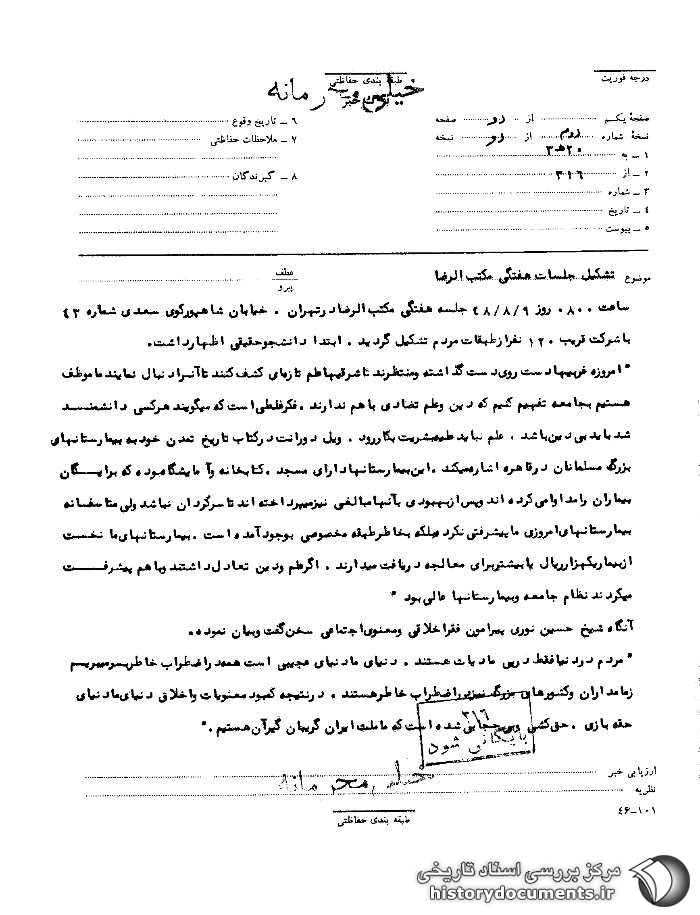 درجه فوریت
طبقه بندی حفاظتی
خیلی محرمانه
صفحهٔ یکم از دو صفحه
نسخهٔ شماره دوم از دو نسخه
۱ – به ۲۰ ه ۳
۲ – از ۳۱۶
۳ – شماره
۴ – تاریخ
۵ – پیوست
۶ – تاریخ وقوع
۷ – ملاحظات حفاظتی
۸ – گیرندگان
موضوع تشکیل جلسات هفتگی مکتب الرضا
عطف
پیرو
ساعت ۰۸۰۰ روز ۴۸/۸/۹ جلسه هفتگی مکتب الرضا در تهران ، خیابان شاهپور کوی سعدی شماره ۴۳
با شرکت قریب ۱۲۰ نفر از طبقات مردم تشکیل گردید . ابتدا دانشجو حقیقی اظهار داشت.
" امروزه غربیها دست روی دست گذاشته و منتظرند تا شرقیها علم تازه‌ای کشف کنند تا آنرا دنبال نمایند ما موظف
هستیم بجامعه تفهیم کنیم که دین و علم تضادی با هم ندارند . فکر غلطی است که میگویند هر کسی دانشمند
شد باید بی دین باشد . علم نباید علیه بشریت بکار رود . ویل دورانت در کتاب تاریخ تمدن خود به بیمارستانهای
بزرگ مسلمانان در قاهره اشاره میکند .این بیمارستانها دارای مسجد .کتابخانه و آزمایشگاه بوده که برایگان
بیماران را مداوا می کرده اند و پس از بهبودی بآنها مبالغی نیز میپرداخته اند تا سرگردان نباشد ولی متاسفانه
بیمارستانهای امروزی ما پیشرفتی نکرده بلکه بخاطر طبقه مخصوصی بوجود آمده است .بیمارستانهای ما نخست
از بیمار یکهزار ریال یا بیشتر برای معالجه دریافت میدارند . اگر علم و دین تعادل داشتند و با هم پیشرفت
میکردند نظام جامعه و بیمارستانها عالی بود "
آنگاه شیخ حسین نوری پیرامون فقر اخلاقی و معنوی اجتماعی سخن گفت و بیان نمود.
" مردم در دنیا فقط در پی مادیات هستند . دنیای ما دنیای عجیبی است همه در اضطراب خاطر بسر میبریم
زمامداران و کشورهای بزرگ نیز در اضطراب خاطر هستند . در نتیجه کمبود معنویات و اخلاق دنیای ما دنیای
حقه بازی . حق کشی و بی حجابی شده است که ما ملت ایران گریبان گیر آن هستیم ."
۳۱۶
بایگانی شود
ارزیابی خبر
خیلی محرمانه
نظریه
۴۶–۱۰۱
طبقه بندی حفاظتی
مرکز بررسی اسناد تاریخی
historydocuments.ir